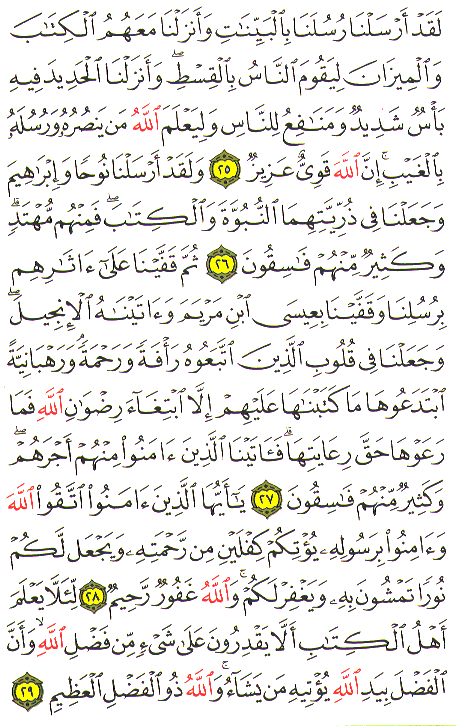 لَقَدْ أَرْسَلْنَا رُسُلَنَا بِٱلْبَيِّنَٰتِ وَأَنزَلْنَا مَعَهُمُ ٱلْكِتَٰبَ
وَٱلْمِيزَانَ لِيَقُومَ ٱلنَّاسُ بِٱلْقِسْطِۖ وَأَنزَلْنَا ٱلْحَدِيدَ فِيهِ
بَأْسٌ شَدِيدٌ وَمَنَٰفِعُ لِلنَّاسِ وَلِيَعْلَمَ ٱللَّهُ مَن يَنصُرُهُۥ وَرُسُلَهُۥ
بِٱلْغَيْبِۚ إِنَّ ٱللَّهَ قَوِىٌّ عَزِيزٌ ٢٥ وَلَقَدْ أَرْسَلْنَا نُوحًا وَإِبْرَٰهِيمَ
وَجَعَلْنَا فِى ذُرِّيَّتِهِمَا ٱلنُّبُوَّةَ وَٱلْكِتَٰبَۖ فَمِنْهُم مُّهْتَدٍۖ
وَكَثِيرٌ مِّنْهُمْ فَٰسِقُونَ ٢٦ ثُمَّ قَفَّيْنَا عَلَىٰٓ ءَاثَٰرِهِم
بِرُسُلِنَا وَقَفَّيْنَا بِعِيسَى ٱبْنِ مَرْيَمَ وَءَاتَيْنَٰهُ ٱلْإِنجِيلَۖ
وَجَعَلْنَا فِى قُلُوبِ ٱلَّذِينَ ٱتَّبَعُوهُ رَأْفَةً وَرَحْمَةً وَرَهْبَانِيَّةً
ٱبْتَدَعُوهَا مَا كَتَبْنَٰهَا عَلَيْهِمْ إِلَّا ٱبْتِغَآءَ رِضْوَٰنِ ٱللَّهِ فَمَا
رَعَوْهَا حَقَّ رِعَايَتِهَاۖ فَـَٔاتَيْنَا ٱلَّذِينَ ءَامَنُوا۟ مِنْهُمْ أَجْرَهُمْۖ
وَكَثِيرٌ مِّنْهُمْ فَٰسِقُونَ ٢٧ يَٰٓأَيُّهَا ٱلَّذِينَ ءَامَنُوا۟ ٱتَّقُوا۟ ٱللَّهَ
وَءَامِنُوا۟ بِرَسُولِهِۦ يُؤْتِكُمْ كِفْلَيْنِ مِن رَّحْمَتِهِۦ وَيَجْعَل لَّكُمْ
نُورًا تَمْشُونَ بِهِۦ وَيَغْفِرْ لَكُمْۚ وَٱللَّهُ غَفُورٌ رَّحِيمٌ ٢٨ لِّئَلَّا يَعْلَمَ
أَهْلُ ٱلْكِتَٰبِ أَلَّا يَقْدِرُونَ عَلَىٰ شَىْءٍ مِّن فَضْلِ ٱللَّهِۙ وَأَنَّ
ٱلْفَضْلَ بِيَدِ ٱللَّهِ يُؤْتِيهِ مَن يَشَآءُۚ وَٱللَّهُ ذُو ٱلْفَضْلِ ٱلْعَظِيمِ ٢٩